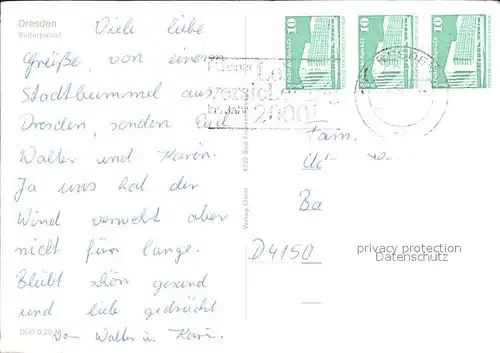 Dresden
Kulturpalast
Viele liebe
Grüße, von einem
Stadtbummel aus
Dresden, senden Euch
Walter und Karin.
Ja uns hat der
Wind verweht aber
nicht für lange.
Bleibt schön gesund
und lieb gedrückt
von Walter u. Karin.
Verlag Garz
10
10
10
2000!
Fam.
Ba
D4150
privacy protection
Datenschutz